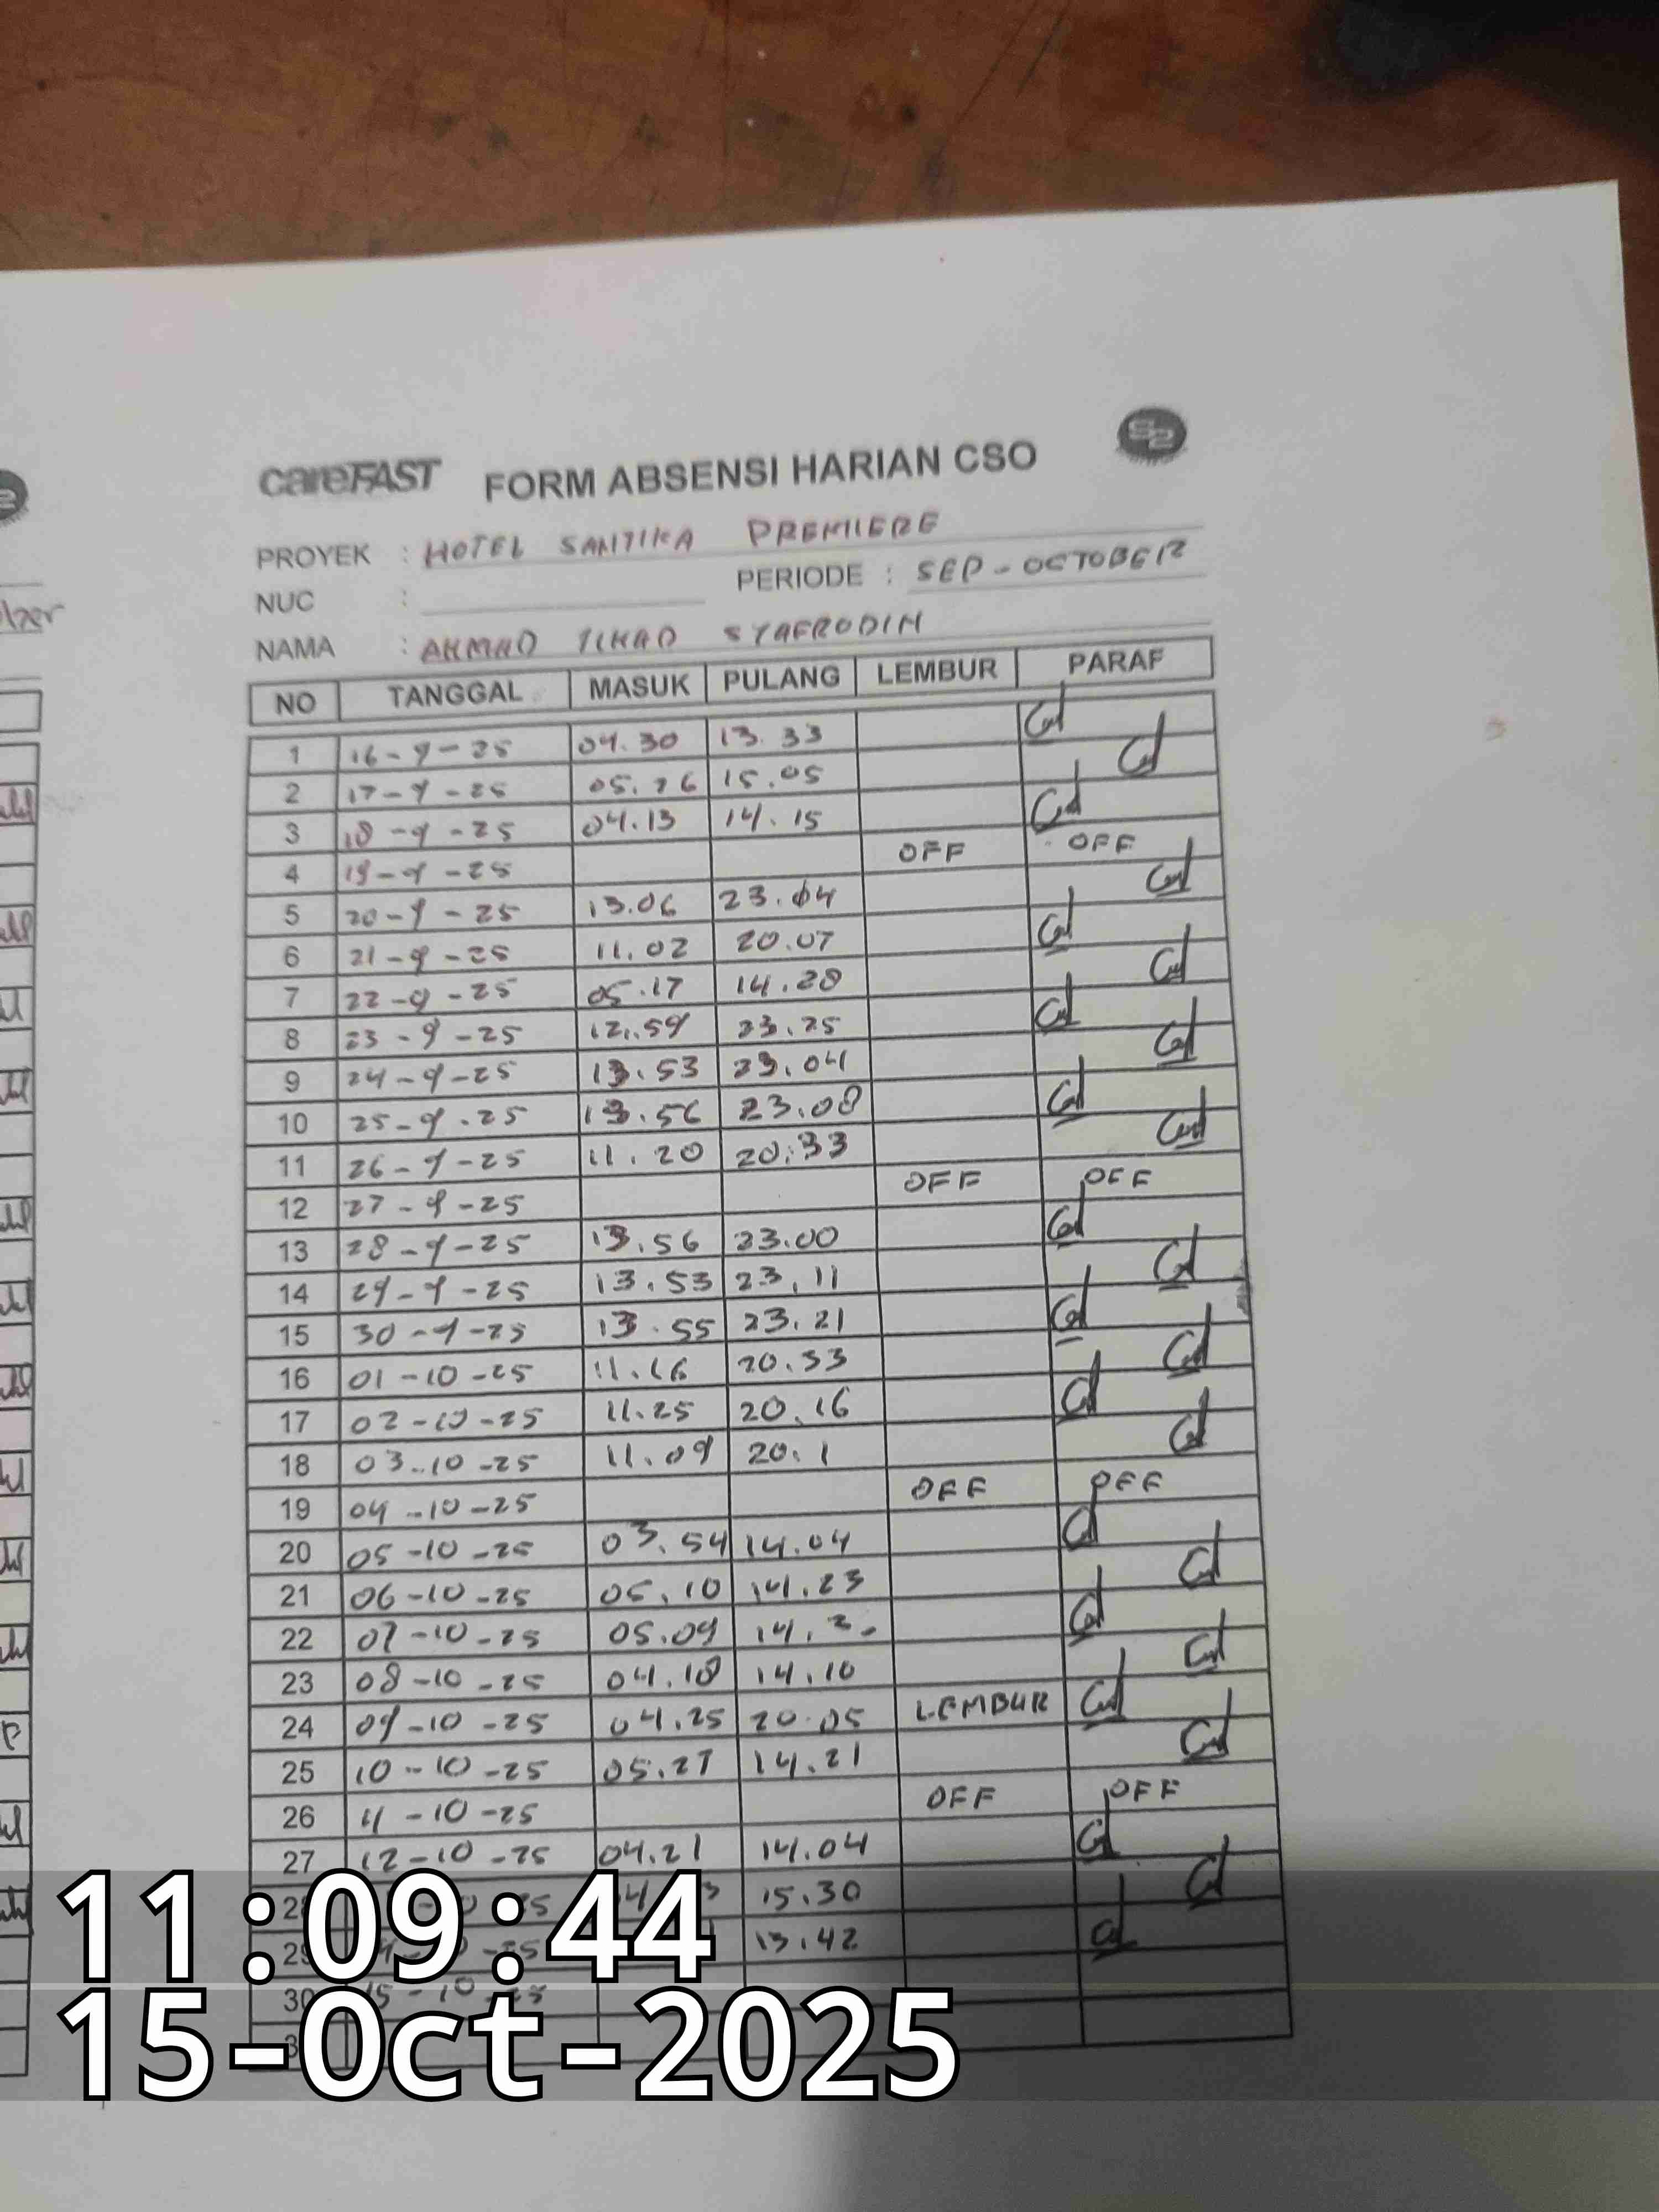 careFAST FORM ABSENSI HARIAN CSO
PROYEK : HOTEL SANTIKA PREMIERE
NUC : PERIODE : SEP - OCTOBER
NAMA : AHMAD SYAFRODIN
NO TANGGAL MASUK PULANG LEMBUR PARAF
1 16-9-25 04.30 13.33
2 17-9-25 05.26 15.05
3 18-9-25 04.13 14.15
4 19-9-25 OFF OFF
5 20-9-25 13.06 23.04
6 21-9-25 11.02 20.07
7 22-9-25 05.17 14.28
8 23-9-25 12.59 23.25
9 24-9-25 13.53 23.04
10 25-9-25 13.56 23.08
11 26-9-25 11.20 20.33
12 27-9-25 OFF OFF
13 28-9-25 13.56 23.00
14 29-9-25 13.53 23.11
15 30-9-25 13.55 23.21
16 01-10-25 11.16 20.33
17 02-10-25 11.25 20.16
18 03-10-25 11.09 20.1
19 04-10-25 OFF OFF
20 05-10-25 03.54 14.04
21 06-10-25 05.10 14.23
22 07-10-25 05.09
23 08-10-25 04.18 14.10
24 09-10-25 04.25 20.05 LEMBUR
25 10-10-25 05.27 14.21
26 11-10-25 OFF OFF
27 12-10-25 04.21 14.04
28 15.30
29 13.42
30 15-10-25
11:09:44
15-Oct-2025